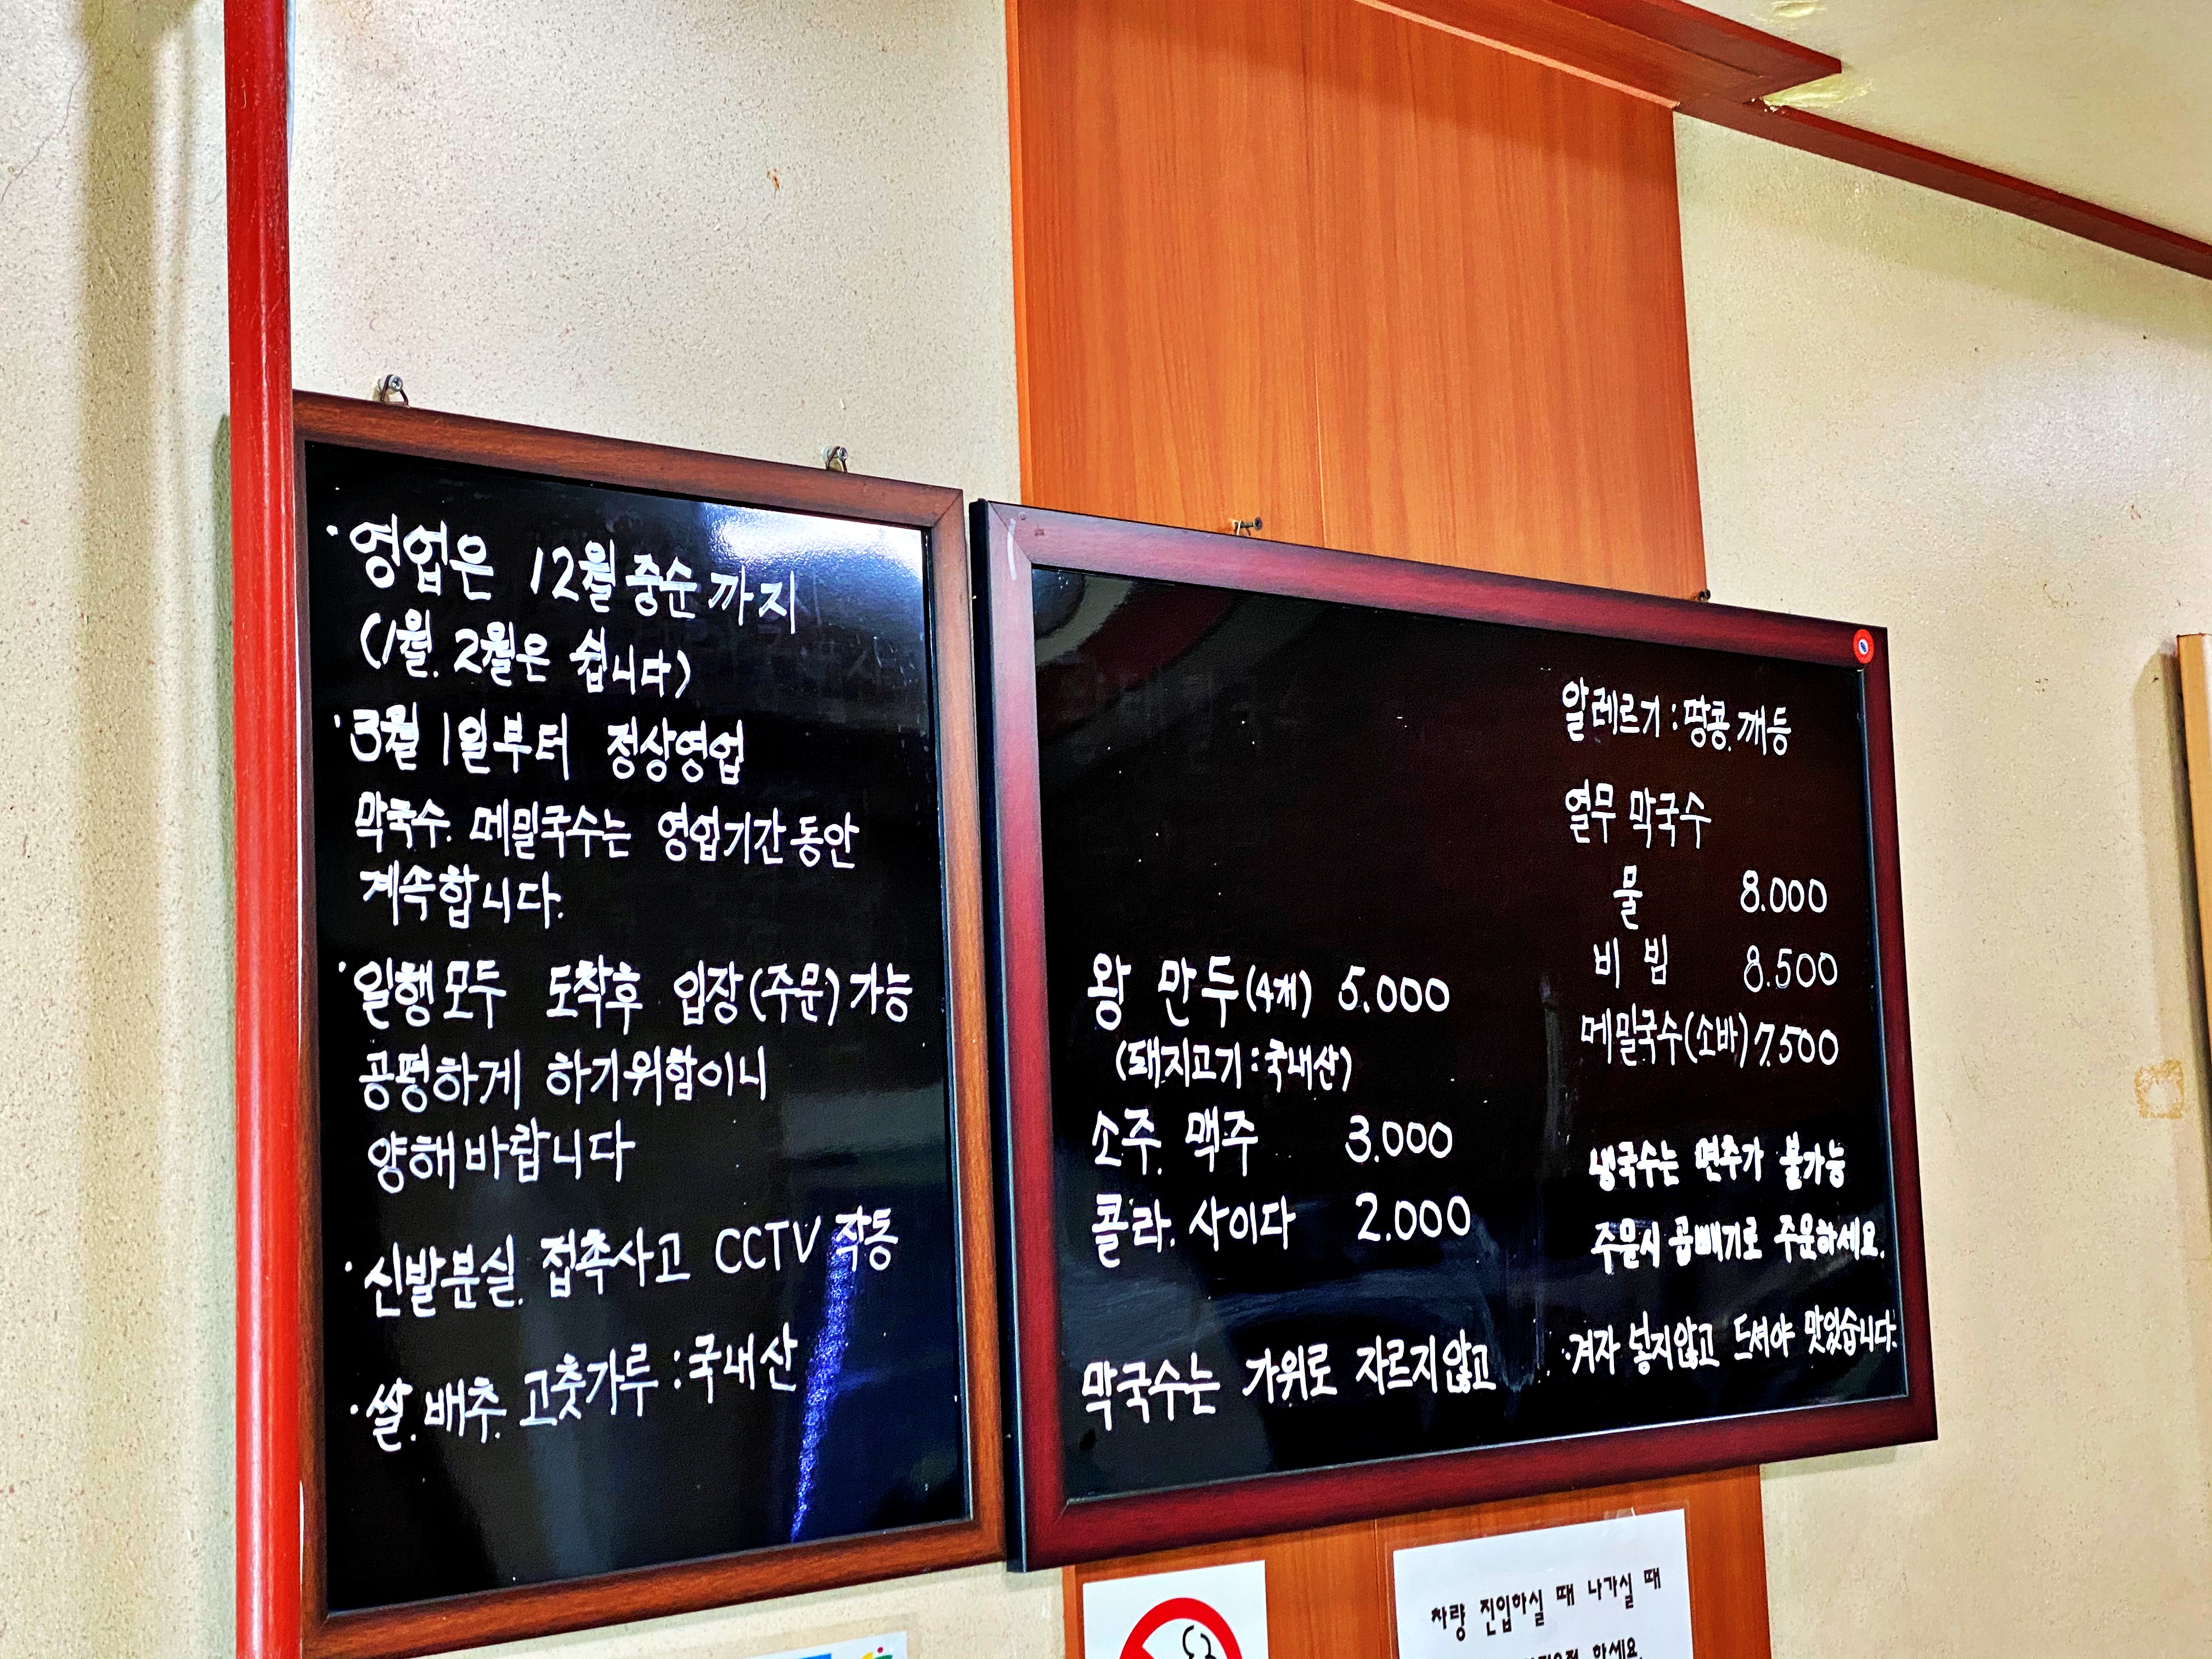 · 영업은 12월 중순까지
(1월. 2월은 쉽니다)
· 3월 1일부터 정상영업
막국수. 메밀국수는 영업기간 동안
계속합니다.
· 일행모두 도착후 입장(주문)가능
공평하게 하기위함이니
양해바랍니다
· 신발분실. 접촉사고 CCTV 작동
· 쌀. 배추. 고춧가루 : 국내산
왕 만두(4개) 5.000
(돼지고기 : 국내산)
소주. 맥주 3.000
콜라. 사이다 2.000
막국수는 가위로 자르지않고
알레르기 : 땅콩. 깨등
열무 막국수
물 8.000
비빔 8.500
메밀국수(소바) 7.500
냉국수는 면추가 불가능
주문시 곱빼기로 주문하세요.
· 겨자 넣지않고 드셔야 맛있습니다.
차량 진입하실 때 나가실 때
하세요.